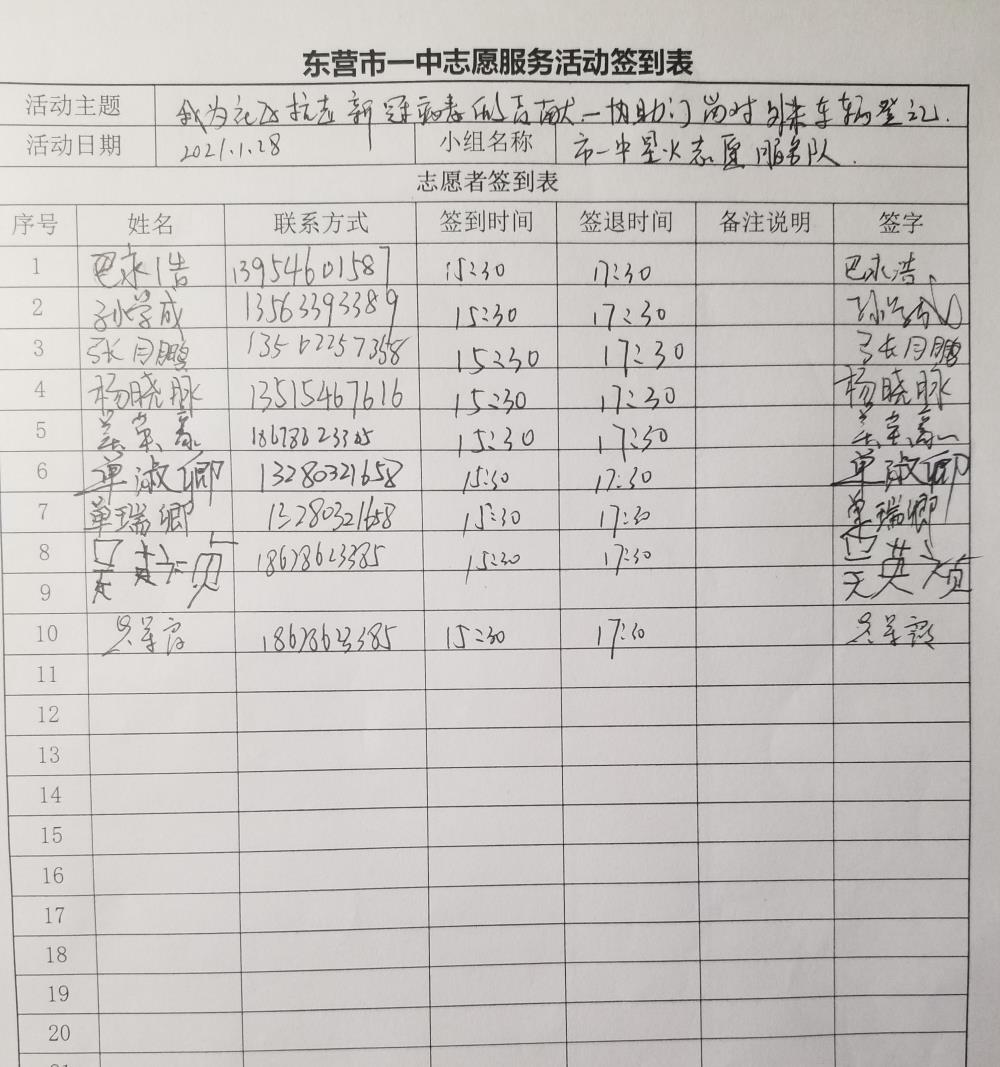 东营市一中志愿服务活动签到表
活动主题 我为社区抗击新冠病毒做贡献—协助门岗对外来车辆登记.
活动日期 2021.1.28 小组名称 市一中星火志愿服务队.
志愿者签到表
序号 姓名 联系方式 签到时间 签退时间 备注说明 签字
1 巴永浩 13954601587 15:30 17:30 巴永浩
2 孙学成 13563393389 15:30 17:30 孙学成
3 张月鹏 15:30 17:30 张月鹏
4 杨晓脉 13515467616 15:30 17:30 杨晓脉
5 15:30 17:30
6 单淑卿 13280321658 15:30 17:30 单淑卿
7 单瑞卿 13280321658 15:30 17:30 单瑞卿
8 吴英贞 18678623385 15:30 17:30 吴英贞
9
10 18678623385 15:30 17:30
11
12
13
14
15
16
17
18
19
20
21